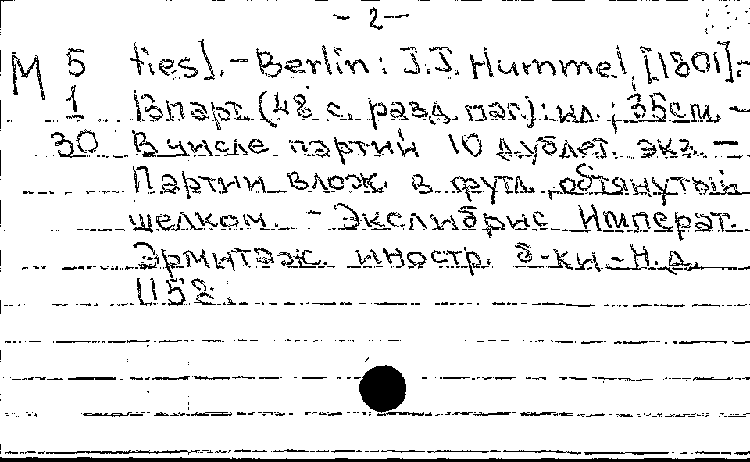 - 2 -
М 5 ties]. - Berlin: J.J. Hummel, [1801]. -
1 13 парт. (48 с. разд. паг.): ил.; 35 см. -
30 В числе партий 10 дублет. экз. -
Партии влож. в футл., обтянутый
шелком. - Экслибрис Императ.
Эрмитаж. иностр. б-ки - Н.д.
1152.